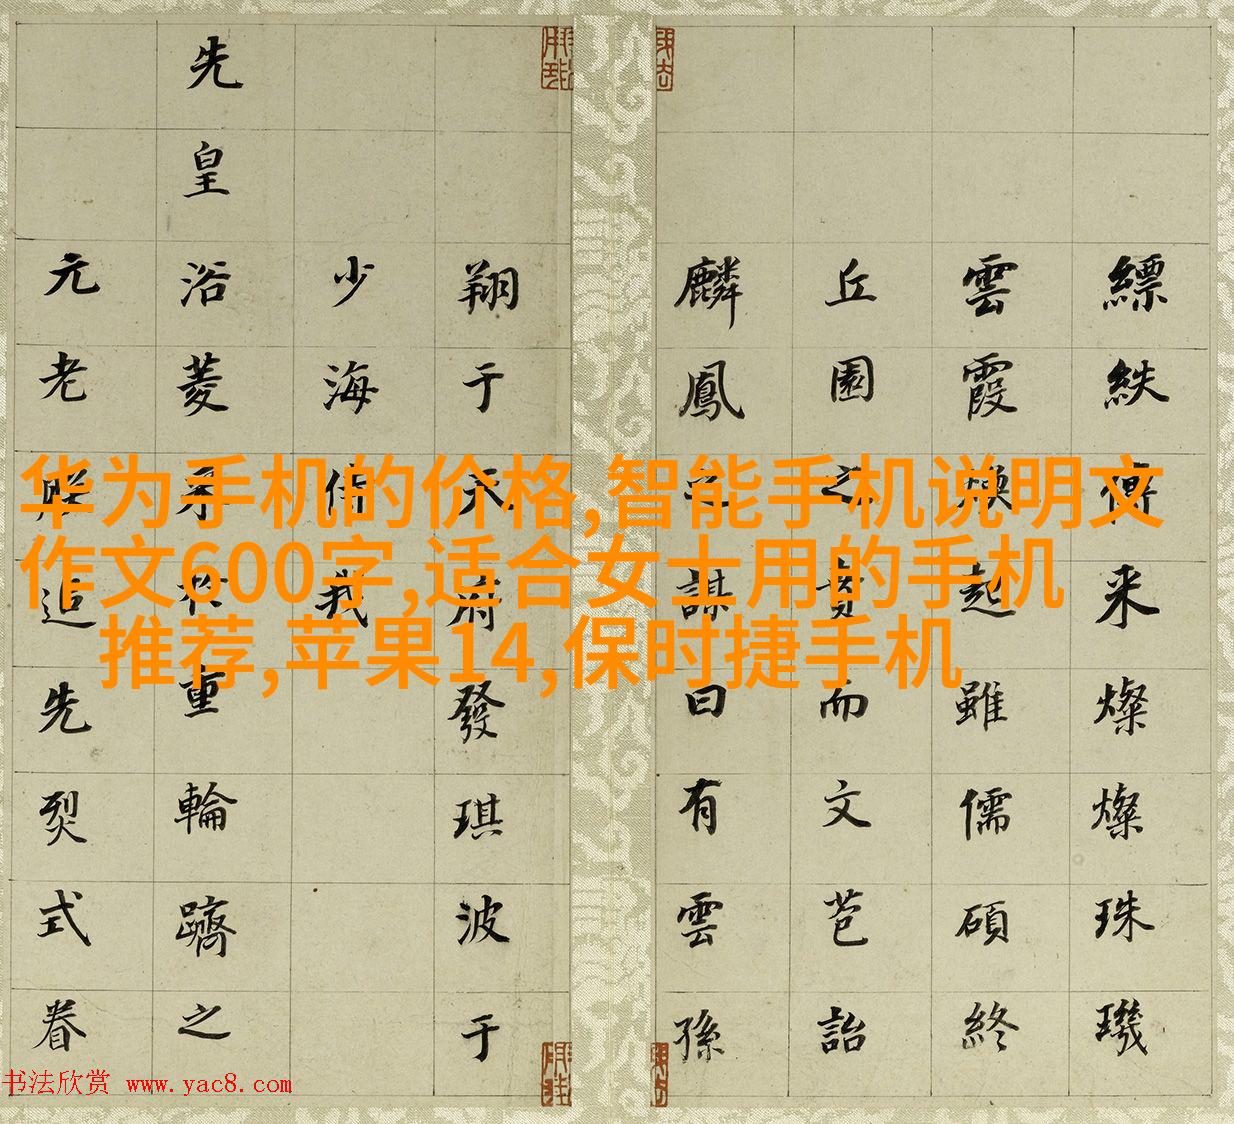 縹紩傳来燦燦珠璣
雲霞煥起雖儒碩終
丘園之賁而文苞詒
麟鳳之謀曰有雲孫
翔于天府發琪波于
少海侍我
先皇浴菱於重輪躋之
元老追先烈式眷
华为手机的价格,智能手机说明文
作文600字,适合女士用的手机
推荐,苹果14,保时捷手机
书法欣赏 www.yac8.com